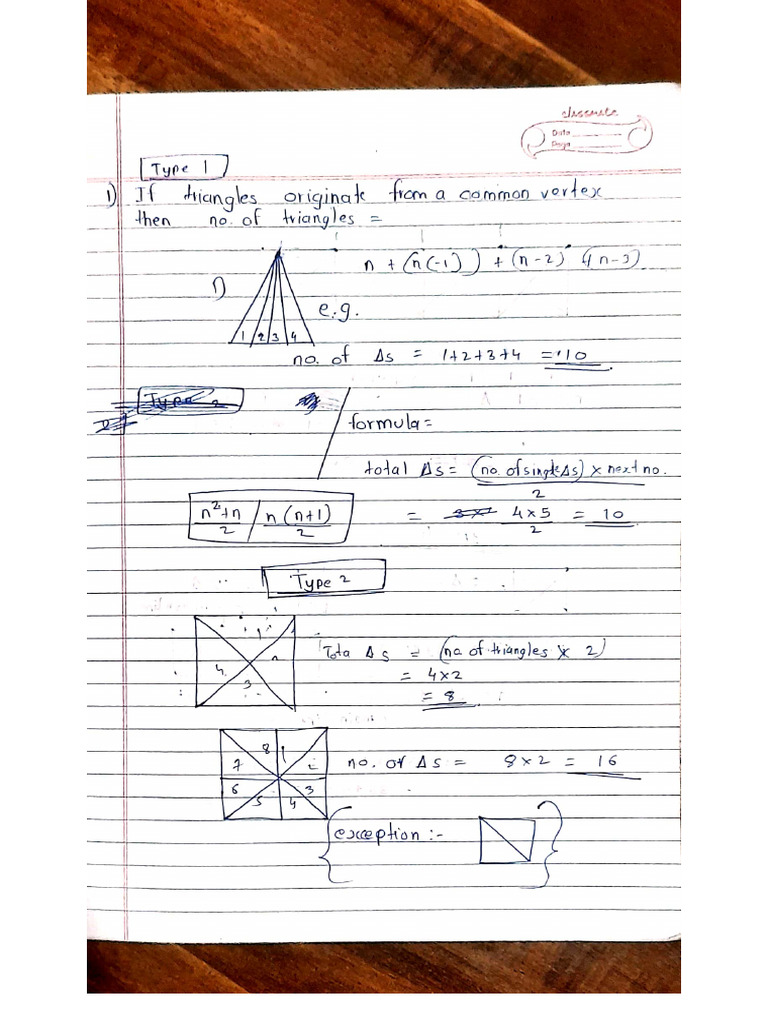 discrete
Date
Page
Type 1
1) If triangles originate from a common vertex
then no. of triangles =
n + (n(-1)) + (n-2) (n-3)
1)
e.g.
1 2 3 4
no. of Δs = 1+2+3+4 = 10
Type 2
formula =
total Δs = (no. of single Δs) × next no.
2
n²+n / n(n+1)
2 2
= 4×5 = 10
2
Type 2
Tota Δs = (no. of triangles × 2)
4
3
= 4×2
= 8
8 1
7 2
no. of Δs = 8×2 = 16
6 3
5 4
{exception :- }